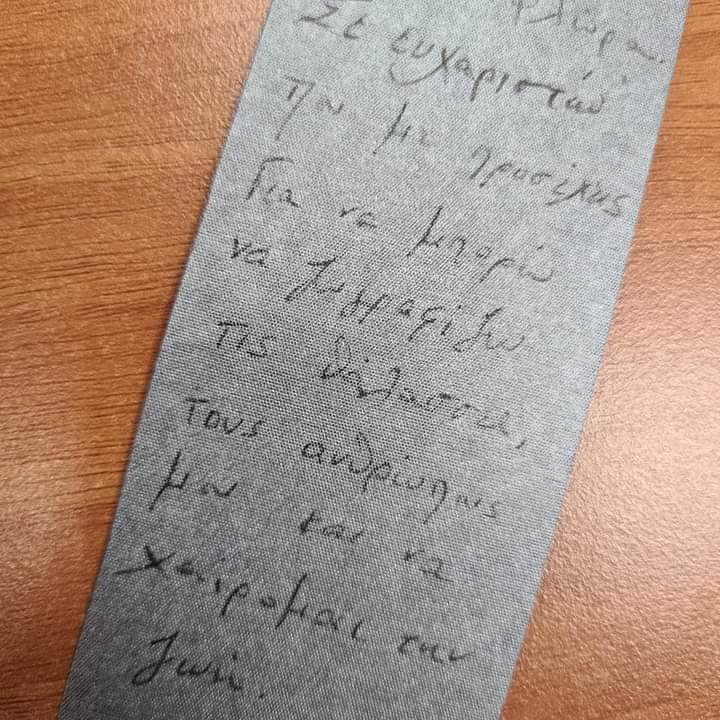 Φλώρα.
Σε ευχαριστώ
που με προσέχεις
Για να μπορώ
να ζωγραφίζω
τις θάλασσες,
τους ανθρώπους
μου και να
χαίρομαι την
ζωή.